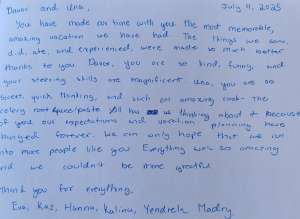 Davor and Una,                July 11, 2025
You have made our time with you the most memorable,
amazing vacation we have had. The things we saw,
did, ate, and experienced, were made so much better
thanks to you. Davor, you are so kind, funny, and
your steering skills are magnificent. Una, you are so
sweet, quick thinking, and such an amazing cook - The
celery root paste still has us thinking about it. Because
of you our expectations and vacation planning have
changed forever. We can only hope that we run
into more people like you. Everything was so amazing
and we couldn't be more grateful
Thank you for everything,
Eva, Kaz, Hanna, Kalina,